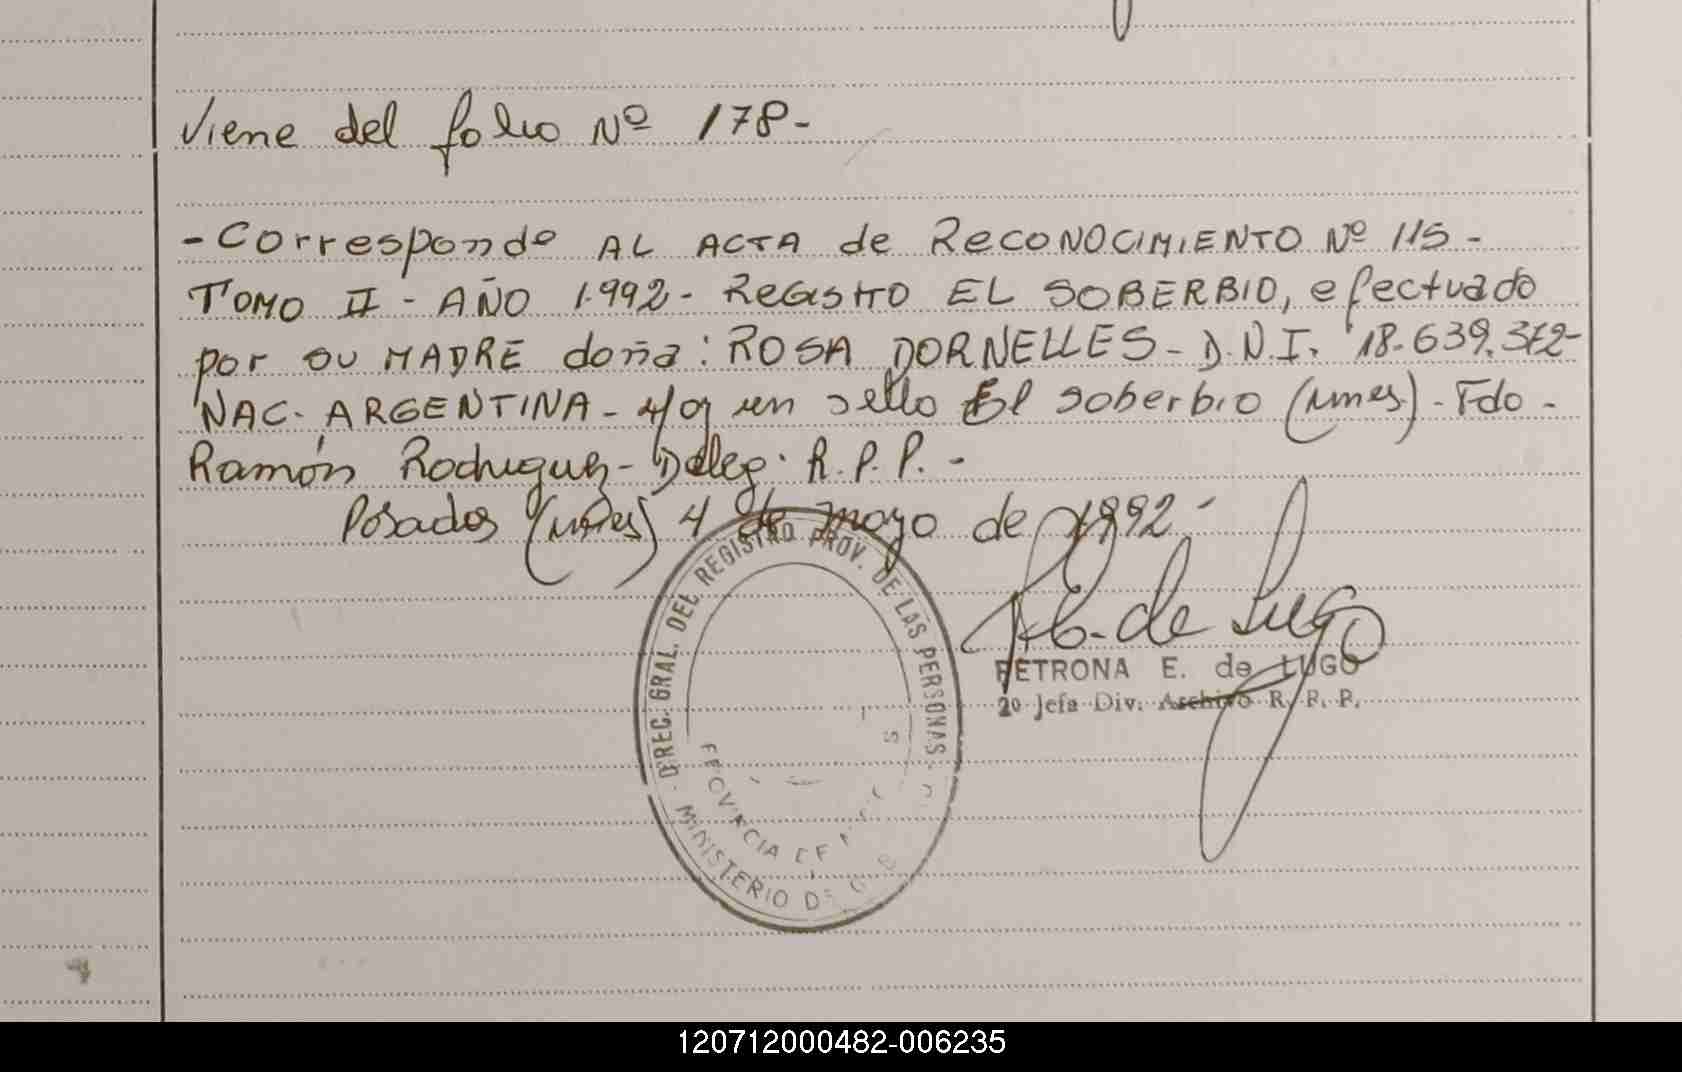 Viene del folio Nº 178-
- Corresponde AL ACTA de RECONOCIMIENTO Nº 115 -
TOMO II - AÑO 1.992 - REGISTRO EL SOBERBIO, efectuado
por su MADRE doña: ROSA DORNELLES - D.N.I. 18.639.372-
NAC. ARGENTINA - un sello El Soberbio (Mnes) - Fdo -
Ramón Rodriguez - Deleg. R.P.P. -
Posadas (Mnes) 4 de mayo de 1992 -
DIREC. GRAL. DEL REGISTRO PROV. DE LAS PERSONAS
MINISTERIO DE
PROVINCIA DE
E. de Lugo
PETRONA E. de LUGO
2º Jefa Div. Archivo R. P. P.
120712000482-006235